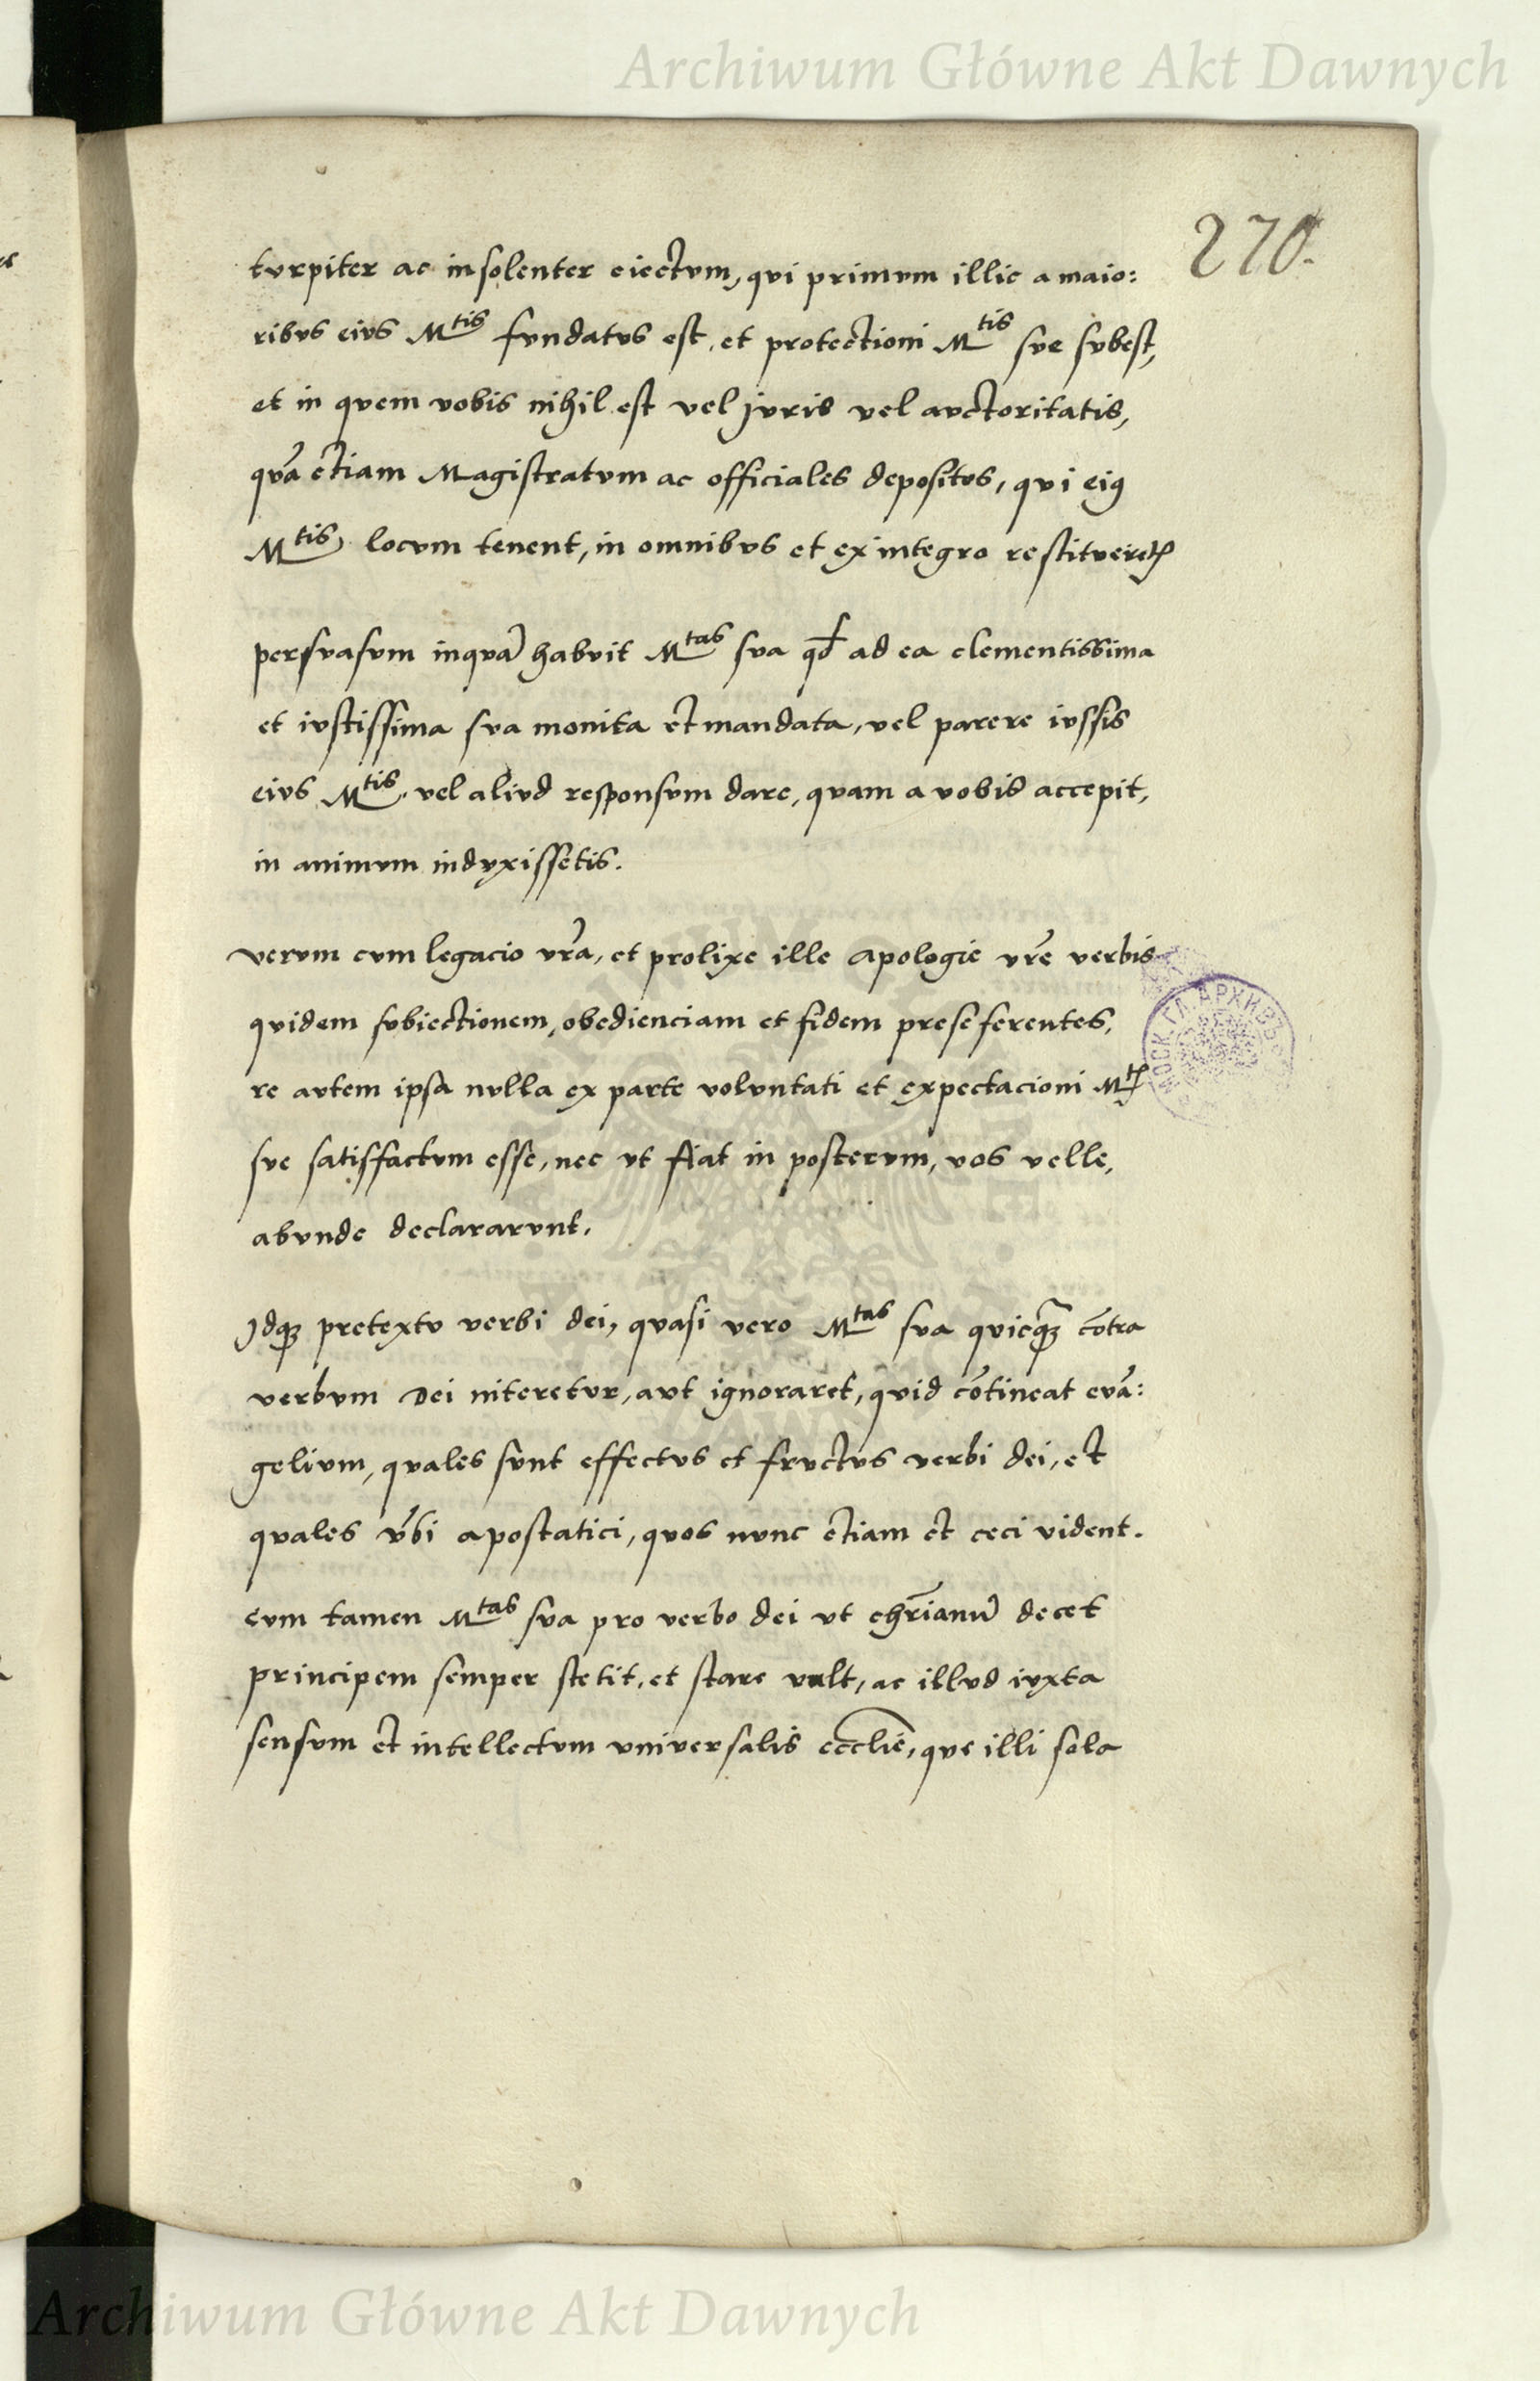 Archiwum Główne Akt Dawnych
270.
turpiter ac insolenter eiectum, qui primum illic a maio:
ribus eius M^tis fundatus est, et protectioni M^tis sue subest,
et in quem vobis nihil est vel juris vel auctoritatis,
quā etiam Magistratum ac officiales depositos, qui eiꝰ
M^tis locum tenent, in omnibus et ex integro restitueretꝭ
persuasum inquā habuit M^tas sua qđ ad ea clementissima
et iustissima sua monita et mandata, vel parere iussis
eius M^tis, vel aliud responsum dare, quam a vobis accepit,
in animum induxissetis.
verum cum legacio vrā, et prolixe ille Apologie vrē verbis
quidem subiectionem, obedienciam et fidem preseferentes,
re autem ipsa nulla ex parte voluntati et expectacioni M^tꝭ
sue satisfactum esse, nec ut fiat in posterum, vos velle,
abunde declararunt.
Idqꝫ pretextu verbi dei, quasi vero M^tas sua quicqꝫ cōtra
verbum Dei niteretur, aut ignoraret, quid cōtineat euā:
gelium, quales sunt effectus et fructus verbi dei, et
quales v̄bi apostatici, quos nunc etiam et ceci vident.
cum tamen M^tas sua pro verbo dei ut chr̄ianū decet
principem semper stetit, et stare vult, ac illud iuxta
sensum et intellectum universalis eccliē, que illi sola
МОСК. ГЛ. АРХИВЪ
Archiwum Główne Akt Dawnych